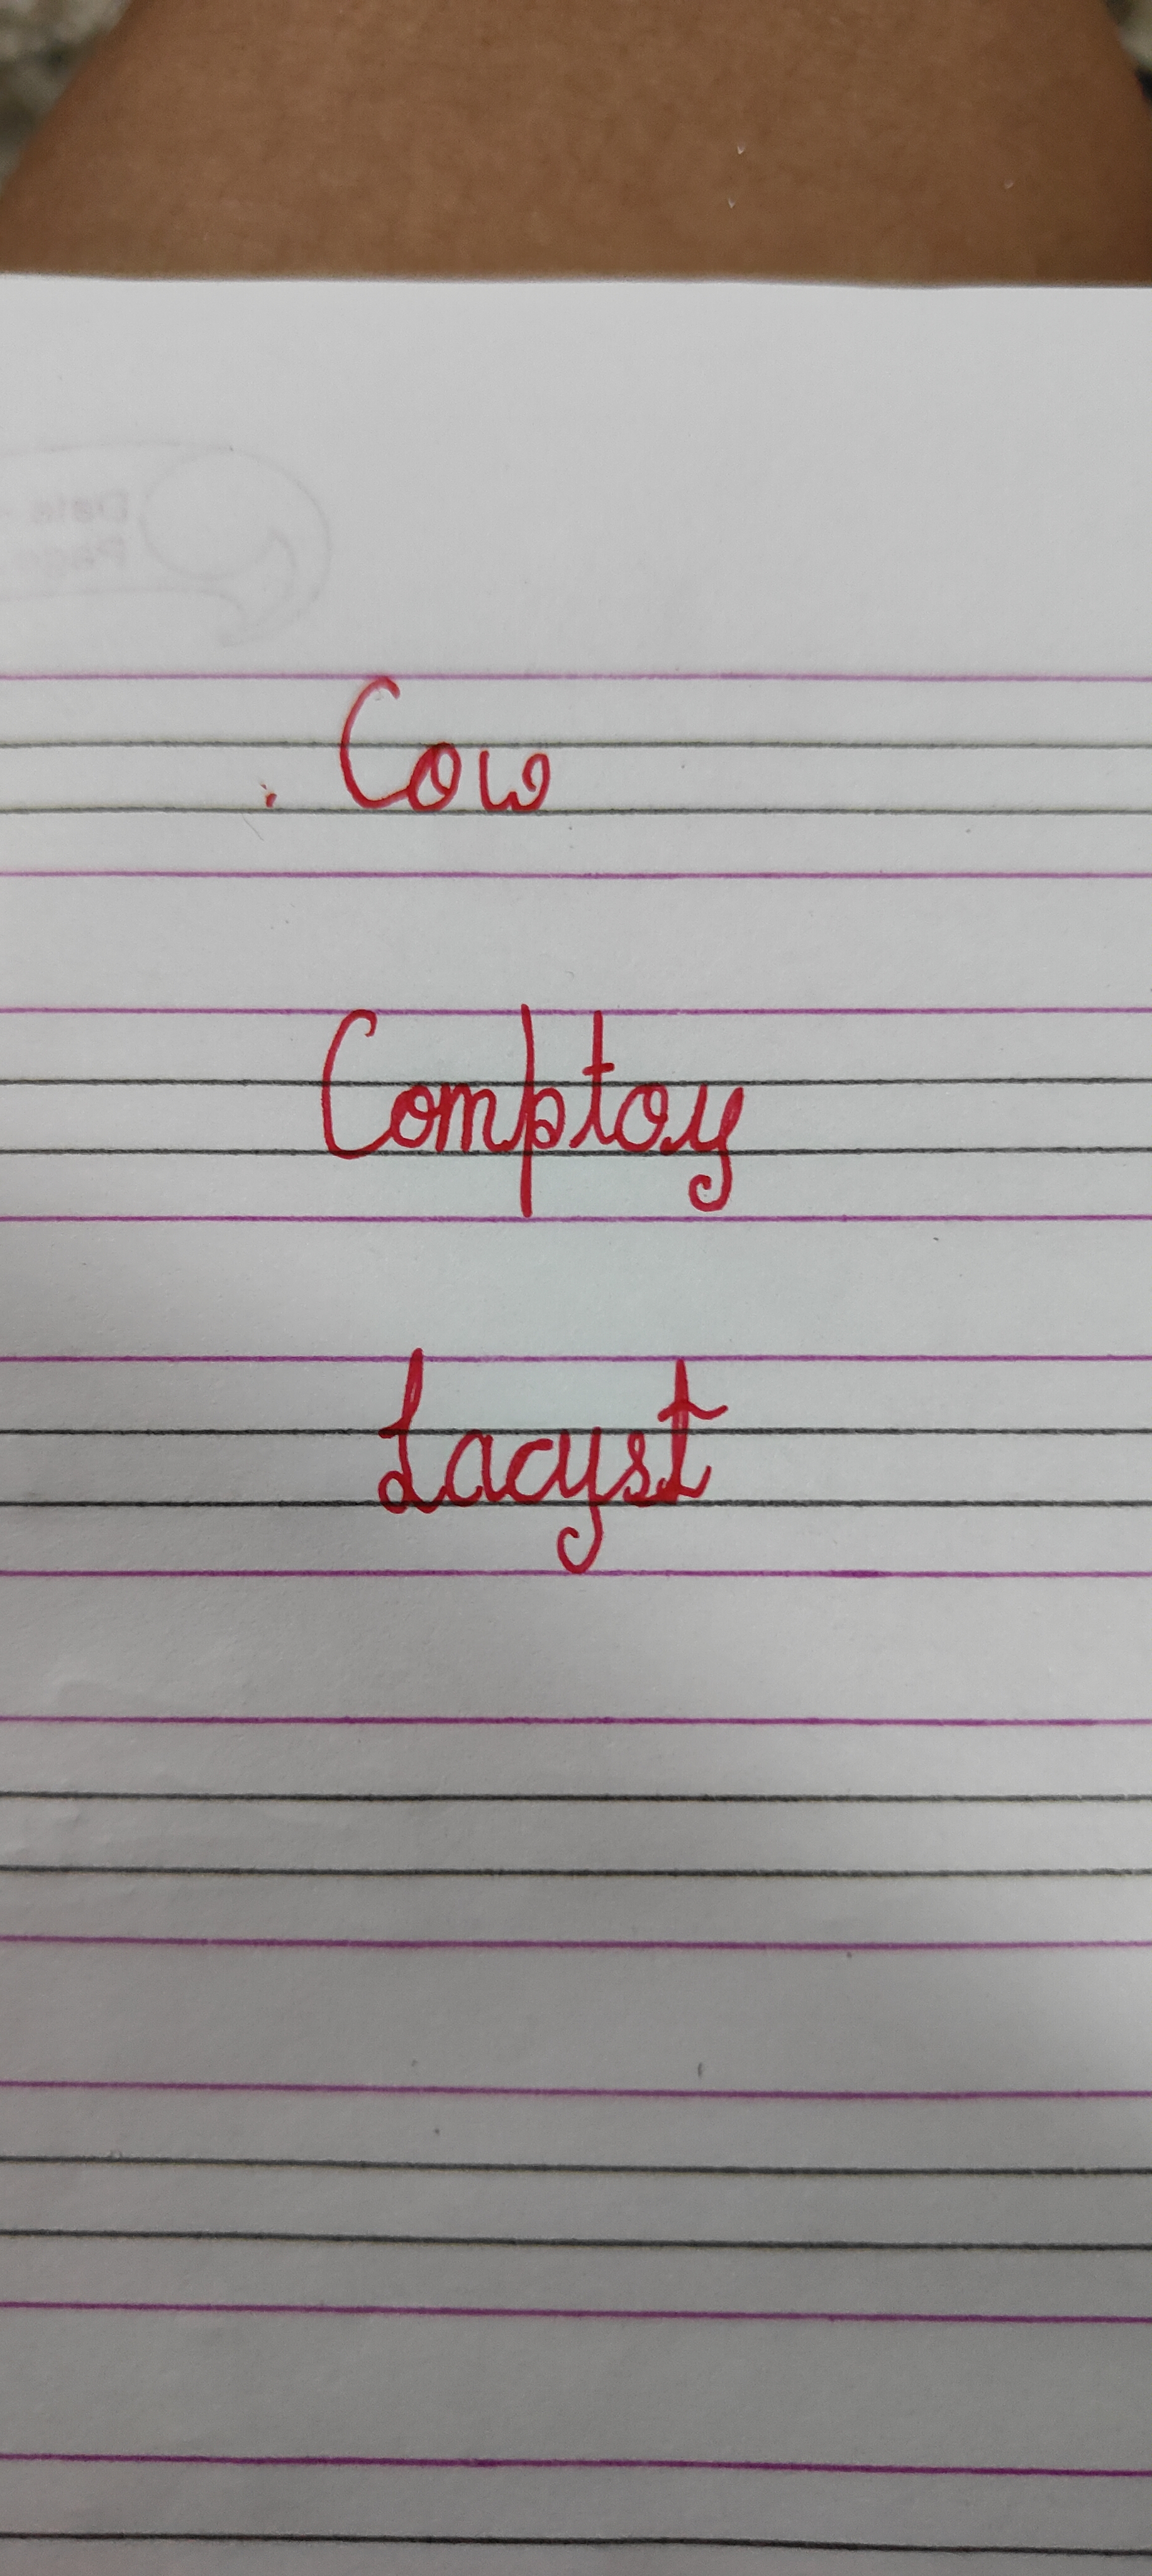 Cow
Comptoy
Lacyst